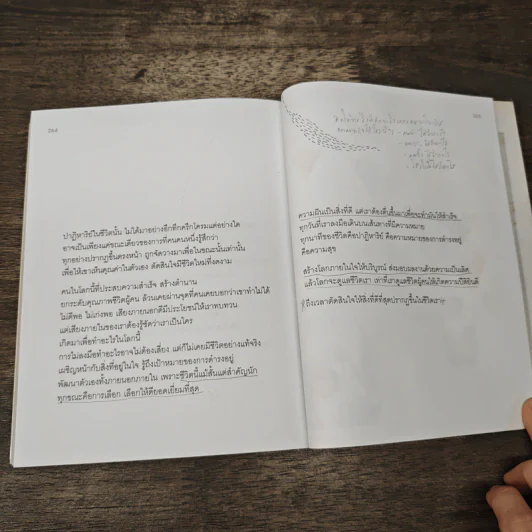 264
ปาฏิหาริย์ในชีวิตนั้น ไม่ได้มาอย่างอึกทึกครึกโครมแต่อย่างใด
อาจเป็นเพียงแค่ขณะเดียวของการที่คนคนหนึ่งรู้สึกว่า
ทุกอย่างปรากฏขึ้นตรงหน้า ถูกจัดวางมาเพื่อในขณะนั้นเท่านั้น
เพื่อให้เราเห็นคุณค่าในตัวเอง ตัดสินใจมีชีวิตใหม่ที่งดงาม
คนในโลกนี้ที่ประสบความสำเร็จ สร้างตำนาน
ยกระดับคุณภาพชีวิตผู้คน ล้วนเคยผ่านจุดที่คนเคยบอกว่าเขาทำไม่ได้
ไม่ดีพอ ไม่เก่งพอ เสียงภายนอกดีมีประโยชน์ให้เราทบทวน
แต่เสียงภายในของเราต้องรู้ชัดว่าเราเป็นใคร
เกิดมาเพื่อทำอะไรในโลกนี้
การไม่ลงมือทำอะไรอาจไม่ต้องเสี่ยง แต่ก็ไม่เคยมีชีวิตอย่างแท้จริง
เผชิญหน้ากับสิ่งที่อยู่ในใจ รู้ถึงเป้าหมายของการดำรงอยู่
พัฒนาตัวเองทั้งภายนอกภายใน เพราะชีวิตนี้แม้สั้นแต่สำคัญนัก
ทุกขณะคือการเลือก เลือกให้ดียอดเยี่ยมที่สุด
265
ความฝันเป็นสิ่งที่ดี แต่เราต้องตื่นขึ้นมาเพื่อจะทำมันให้สำเร็จ
ทุกวันที่เราลงมือเดินบนเส้นทางที่มีความหมาย
ทุกนาทีของชีวิตคือปาฏิหาริย์ คือความหมายของการดำรงอยู่
คือความสุข
สร้างโลกภายในใจให้บริบูรณ์ ส่งมอบผลงานด้วยความเป็นเลิศ
แล้วโลกจะดูแลชีวิตเรา เท่าที่เราดูแลชีวิตผู้คนให้เกิดความปีติยินดี
ถึงเวลาตัดสินใจให้สิ่งที่ดีที่สุดปรากฏขึ้นในชีวิตเรา